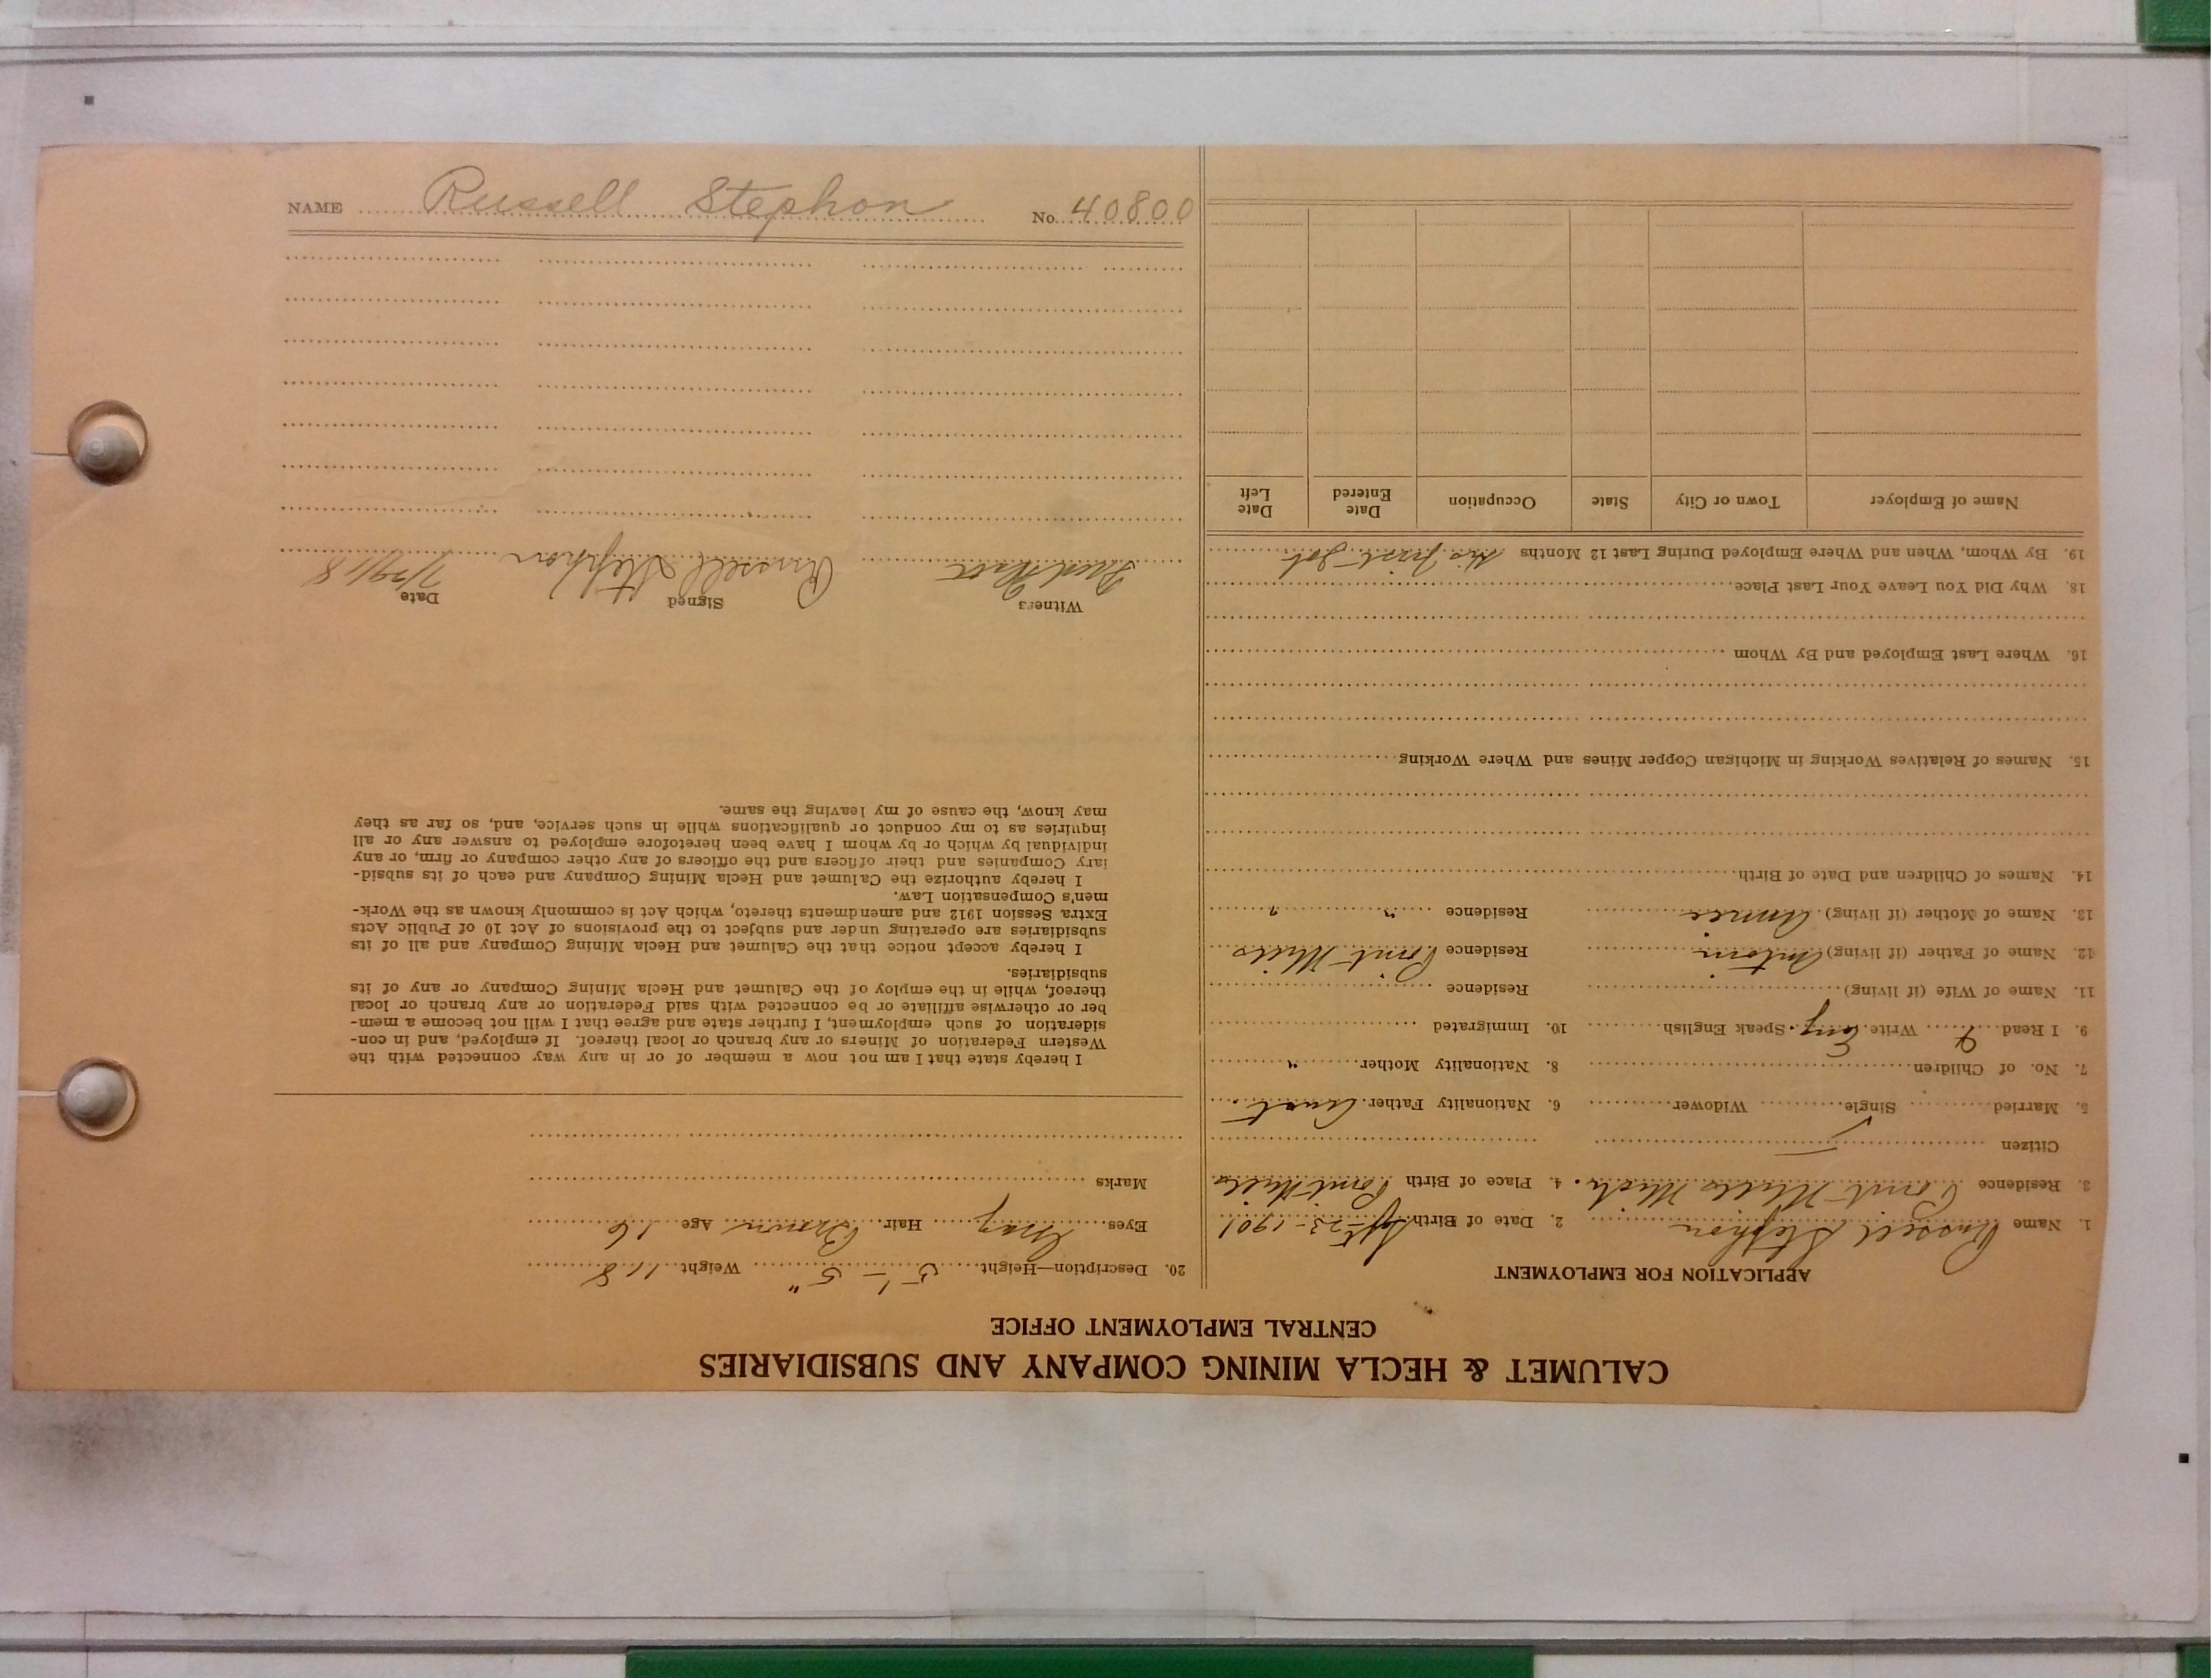 NAME Russell Stephon No. 40800
CALUMET & HECLA MINING COMPANY AND SUBSIDIARIES
CENTRAL EMPLOYMENT OFFICE
APPLICATION FOR EMPLOYMENT
1. Name Russell Stephon 2. Date of Birth Sept-23-1901
3. Residence Point Mills Mich. 4. Place of Birth Point Mills
Citizen
5. Married Single Widower 6. Nationality Father Aust.
7. No. of Children 8. Nationality Mother "
9. I Read & Write Eng. Speak English 10. Immigrated
11. Name of Wife (if living) Residence
12. Name of Father (if living) Antoin Residence Point Mills
13. Name of Mother (if living) Annie Residence " "
14. Names of Children and Date of Birth
15. Names of Relatives Working in Michigan Copper Mines and Where Working
16. Where Last Employed and By Whom
18. Why Did You Leave Your Last Place
19. By Whom, When and Where Employed During Last 12 Months His First Job
Name of Employer Town or City State Occupation Date Entered Date Left
20. Description—Height 5'-5" Weight 118
Eyes Gray Hair Brown Age 16
Marks
I hereby state that I am not now a member of or in any way connected with the
Western Federation of Miners or any branch or local thereof. If employed, and in con-
sideration of such employment, I further state and agree that I will not become a mem-
ber or otherwise affiliate or be connected with said Federation or any branch or local
thereof, while in the employ of the Calumet and Hecla Mining Company or any of its
subsidiaries.
I hereby accept notice that the Calumet and Hecla Mining Company and all of its
subsidiaries are operating under and subject to the provisions of Act 10 of Public Acts
Extra Session 1912 and amendments thereto, which Act is commonly known as the Work-
men's Compensation Law.
I hereby authorize the Calumet and Hecla Mining Company and each of its subsid-
iary Companies and their officers and the officers of any other company or firm, or any
individual by which or by whom I have been heretofore employed to answer any or all
inquiries as to my conduct or qualifications while in such service, and, so far as they
may know, the cause of my leaving the same.
Witness Signed Date
Russell Stephon 7/29/18